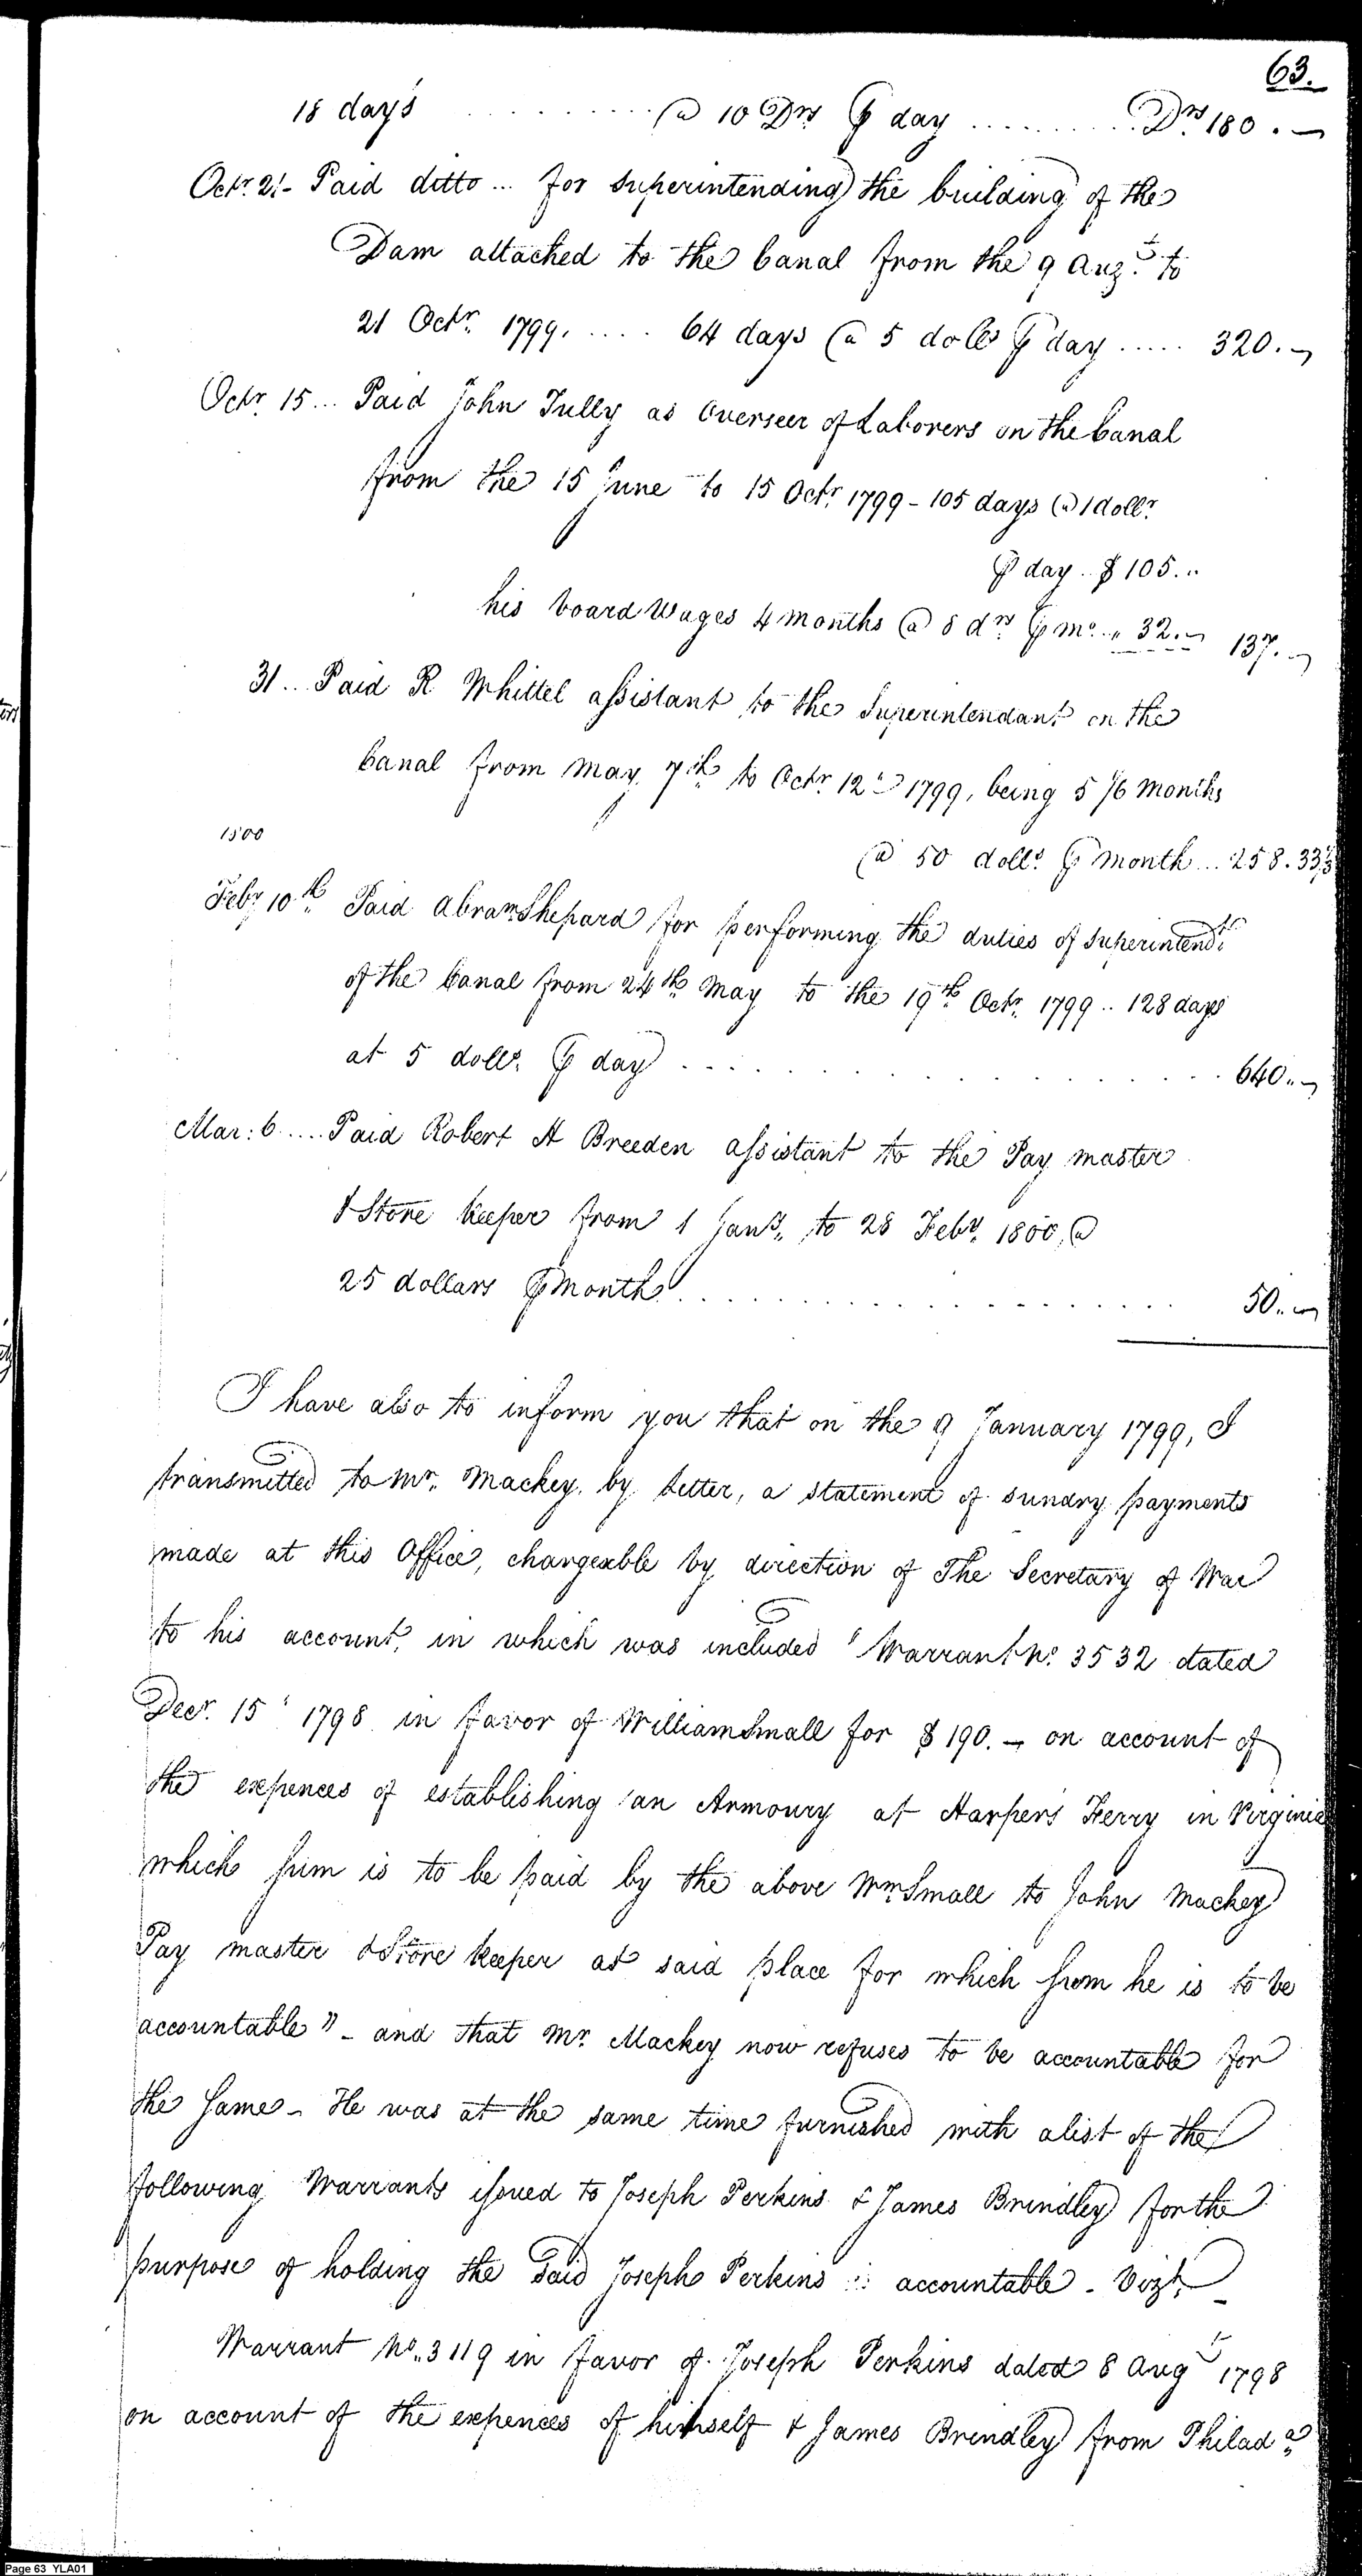 63.
18 days . . . . . . . . . . @ 10 Drs ⅌ day . . . . . . . . . . Drs 180. —
Octr. 21 - Paid ditto ... for superintending the building of the
Dam attached to the Canal from the 9 Augt. to
21 Octr. 1799. . . . . 64 days @ 5 dolls ⅌ day . . . . . 320. —
Octr. 15 ... Paid John Tully as Overseer of Laborers on the Canal
from the 15 June to 15 Octr. 1799 - 105 days @ 1 dollr.
⅌ day . . $ 105. "
his board Wages 4 months @ 8 drs ⅌ mo. " 32. — 137. —
31 .. Paid R Whittel assistant to the Superintendant on the
Canal from May 7th to Octr. 12th 1799, being 5 1/6 Months
1800
@ 50 dolls. ⅌ month ... 258.33⅓
Feby. 10th. Paid Abram Shepard for performing the duties of Superintendt.
of the Canal from 24th May to the 19th Octr. 1799 .. 128 days
at 5 dolls. ⅌ day . . . . . . . . . . . . . . . 640. —
Mar: 6 .... Paid Robert A Breeden assistant to the Pay master
& Store keeper from 1 Jany. to 28 Feby. 1800, @
25 dollars ⅌ Month . . . . . . . . . . . . . . . 50. —
I have also to inform you that on the 9 January 1799, I
transmitted to Mr. Mackey, by letter, a statement of sundry payments
made at this Office, chargeable by direction of The Secretary of War
to his account, in which was included "Warrant No. 3532 dated
Decr. 15th 1798 in favor of William Small for $ 190. — on account of
the expences of establishing an Armoury at Harper's Ferry in Virginia
which sum is to be paid by the above Wm Small to John Mackey
Pay master & Store keeper at said place for which sum he is to be
accountable" - and that Mr. Mackey now refuses to be accountable for
the same - He was at the same time furnished with a list of the
following Warrants issued to Joseph Perkins & James Brindley for the
purpose of holding the said Joseph Perkins accountable - Vizt.
Warrant No. 3119 in favor of Joseph Perkins dated 8 Augt 1798
on account of the expences of himself & James Brindley from Philada.
Page 63 YLA01